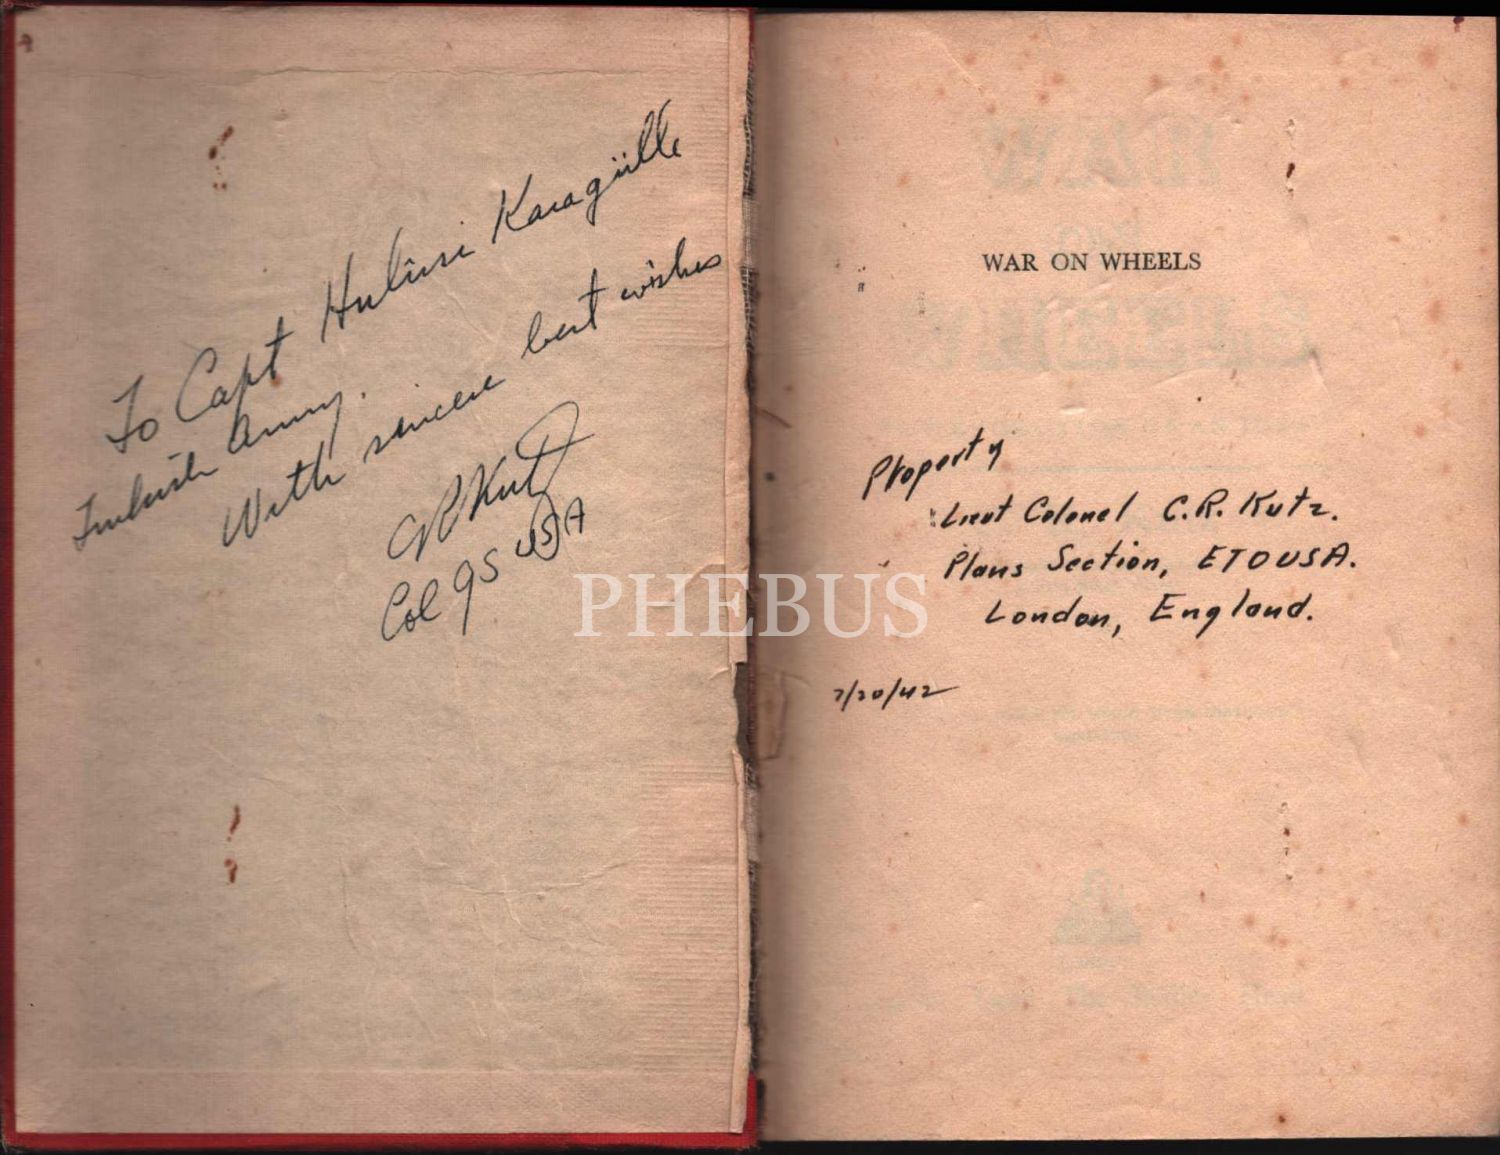 To Capt Hulûsi Karagülle
Turkish Army.
With sincere best wishes
CR Kutz
Col GS USA
WAR ON WHEELS
Property of
Lieut Colonel C.R. Kutz.
Plans Section, ETOUSA.
London, England.
7/20/42
PHEBUS